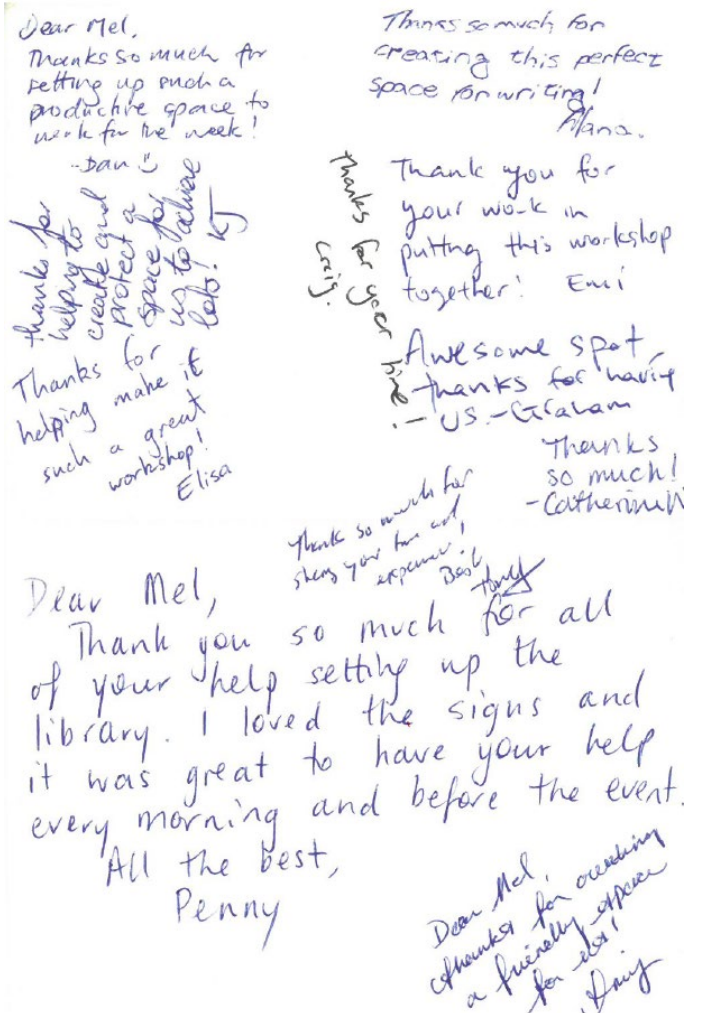 Dear Mel,
Thanks so much for
setting up such a
productive space to
work for the week!
-Dan
Thanks so much for
creating this perfect
space for writing!
Alana.
thanks for
helping to
create and
protect a
space for
us to achieve
lots! KJ
Thanks for your time!
Craig.
Thank you for
your work in
putting this workshop
together! Emi
Thanks for
helping make it
such a great
workshop!
Elisa
Awesome spot,
thanks for having
US. - Graham
Thanks
so much!
-Catherine
Thanks so much for
your time and
Best
Dear Mel,
Thank you so much for all
of your help setting up the
library. I loved the signs and
it was great to have your help
every morning and before the event.
All the best,
Penny
Dear Mel,
thanks for creating
a friendly space
for us!